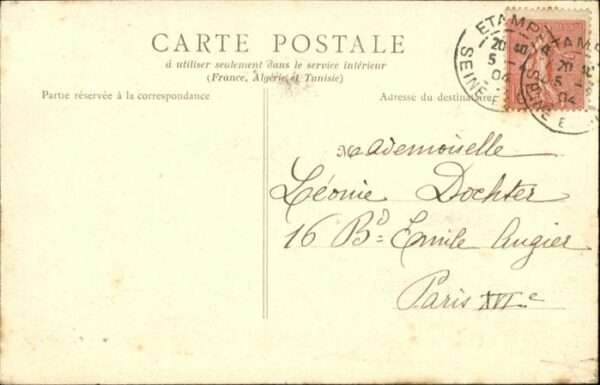 CARTE POSTALE
à utiliser seulement dans le service intérieur
(France, Algérie et Tunisie)
Partie réservée à la correspondance
Adresse du destinataire
ETAMP
20 40
5 - 4
04
SEINE
ETAM
20
5
04
Mademoiselle
Léonie Dochter
16 Bd Emile Augier
Paris XVIe